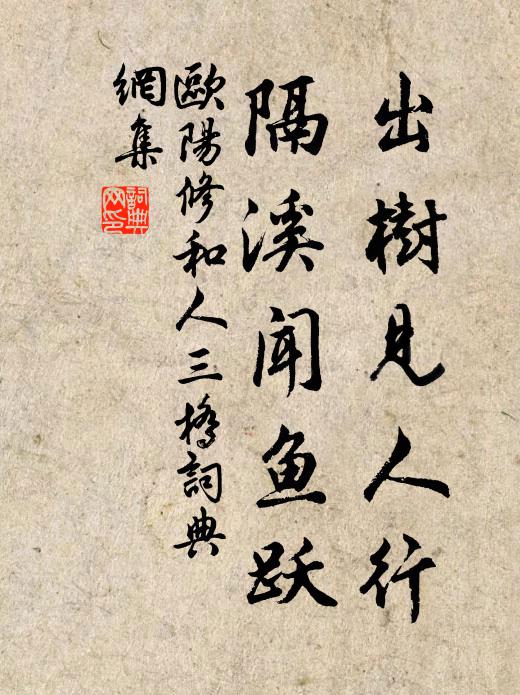 出樹見人行
隔溪闻鱼跃
歐陽修和人三橋詞典
網集
詞典网印